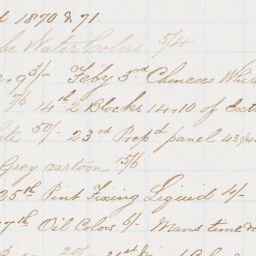 d 1870 & 71.
Water Colors, 5/4
9 3/- Feby 3rd Chenese Whi
7/6 14th 2 Blocks 14+10 of Ext
50/- 23rd Prepd panel 43/4
Grey cartoon 15/6
25th Pint Fixing Liquid 4/-
7th Oil Colors 6/- Mans time